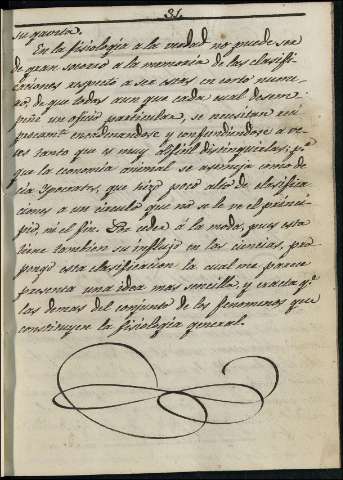 31.
su gaveta.
En la fisiologia a la verdad no puede ser
de gran socorro a la memoria de las clasifi-
caciones respecto a ser estas en corto nume-
ro, de que todas aun que cada cual desem-
peñe un oficio particular, se necesitan reci
procamt. encadenandose y confundiendose a ve-
ces tanto que es muy dificil distinguirlas; pr.
que la economia animal se asemeja como de
cia Ypocrates, que hizo poco alto de clasifica-
ciones a un circulo que no se le ve el princi-
pio, ni el fin. Por ceder á la moda, pues esta
tiene tambien su influjo en las ciencias, pro-
pongo esta clasificacion la cual me parece
presenta una idea mas sencilla y exacta qe.
las demas del conjunto de los fenomenos que
constituyen la fisiologia general.